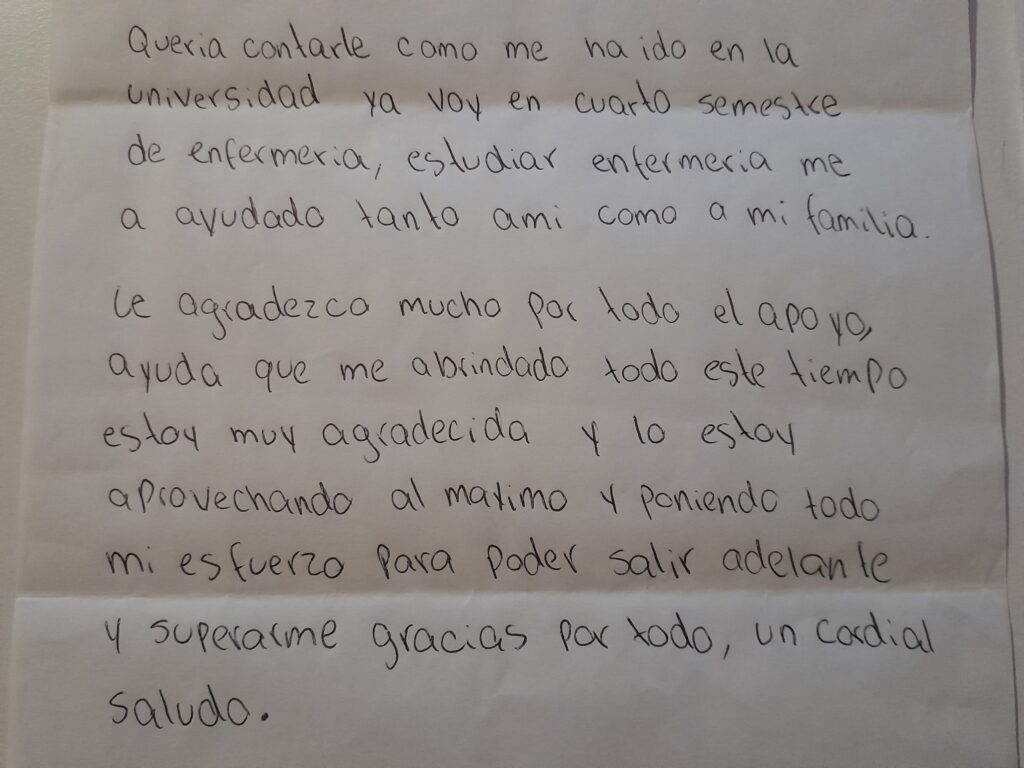 Queria contarle como me ha ido en la
universidad ya voy en cuarto semestre
de enfermeria, estudiar enfermeria me
a ayudado tanto ami como a mi familia.
Le agradezco mucho por todo el apoyo,
ayuda que me abrindado todo este tiempo
estoy muy agradecida y lo estoy
aprovechando al maximo y poniendo todo
mi esfuerzo para poder salir adelante
y superarme gracias por todo, un cordial
saludo.